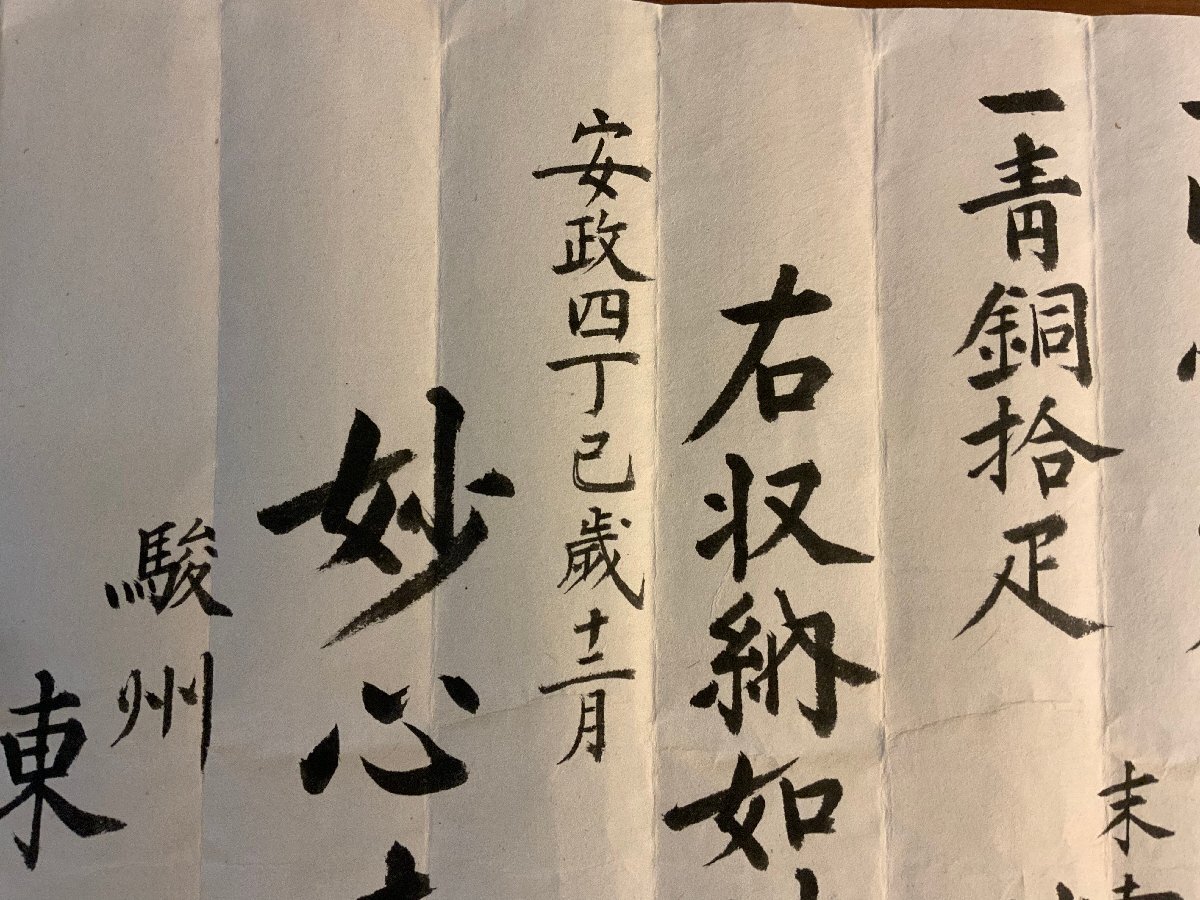 一青銅拾疋
末
右収納如
安政四丁巳歳十二月
妙心
駿州
東